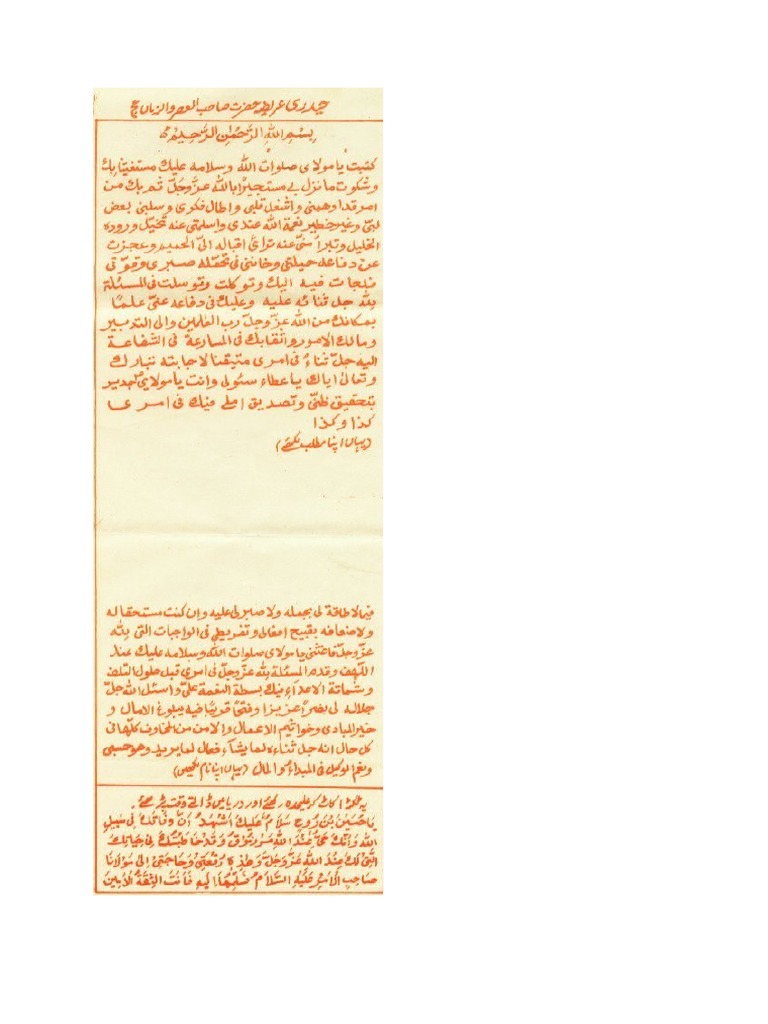 حیدری عریضہ حضرت صاحب العصر والزماں عج
بِسْمِ اللهِ الرَّحْمٰنِ الرَّحِيْمِ
كتبت يا مولاى صلوات الله وسلامه عليك مستغيثا بك
وشكوت ما نزل بى مستجيرا بالله عزّ وجلّ ثم بك من
امر قد اوهمنى واشغل قلبى واطال فكرى وسلبنى بعض
لبّى وغير خطير نعمة الله عندى واسلمنى عنه تخيّل وروده
الخليل وتبرأ منّى عنه ترائى اقباله الىّ الحميم وعجزت
عن دفاعه حيلتى وخاننى فى تحمّله صبرى وقوّتى
فلجات فيه اليك وتوكلت وتوسلت فى المسئلة
بالله جل ثنائه عليه وعليك فى دفاعه عنّى علمًا
بمكانك من الله عزّ وجلّ رب العٰلمين والى التدبير
ومالك الامور واثقا بك فى المسارعة فى الشفاعة
اليه جلّ ثناءُ فى امرى متيقنا لاجابته تبارك
وتعالى اياك باعطاء سئولى وانت يا مولاى جدير
بتحقيق ظنّى وتصديق املى فيك فى امرى
كذا وكذا
(یہاں اپنا مطلب لکھئے)
فيما لا طاقة لى بحمله ولا صبر لى عليه وان كنت مستحقا له
ولاضعافه بقبيح افعالى وتفريطى فى الواجبات التى لله
عزّ وجلّ فاغثنى يا مولاى صلوات الله وسلامه عليك عند
اللهف وقدم المسئلة لله عزّ وجلّ فى امرى قبل حلول التلف
وشماتة الاعداء فبك بسطة النعمة علىّ واسئل الله جلّ
جلاله لى نصرًا عزيزا وفتحًا قريبًا فيه ببلوغ الامال و
خير المبادى وخواتيم الاعمال والامن من المخاوف كلّها فى
كل حال انه جل ثناءه لما يشاء فعال لما يريد وهو حسبى
ونعم الوكيل فى المبداء والمال (یہاں اپنا نام لکھیں)
یہ ٹکڑا کاٹ کر علیحدہ رکھئے اور دریا میں ڈالتے وقت پڑھئے۔
يَا حُسَيْنَ بْنَ رُوحٍ سَلَامٌ عَلَيْكَ اَشْهَدُ اَنَّ وَفَاتَكَ فِى سَبِيلِ
اللهِ وَاَنَّكَ حَىٌّ عِنْدَ اللهِ مَرْزُوقٌ وَقَدْ خَاطَبْتُكَ فِى حَيَاتِكَ
الَّتِى لَكَ عِنْدَ اللهِ عَزَّ وَجَلَّ وَهٰذِهٖ رُقْعَتِى وَحَاجَتِى اِلٰى مَوْلَانَا
صَاحِبِ الْاَمْرِ عَلَيْهِ السَّلَامُ فَسَلِّمْهَا اِلَيْهِ فَاَنْتَ الثِّقَةُ الْاَمِينُ